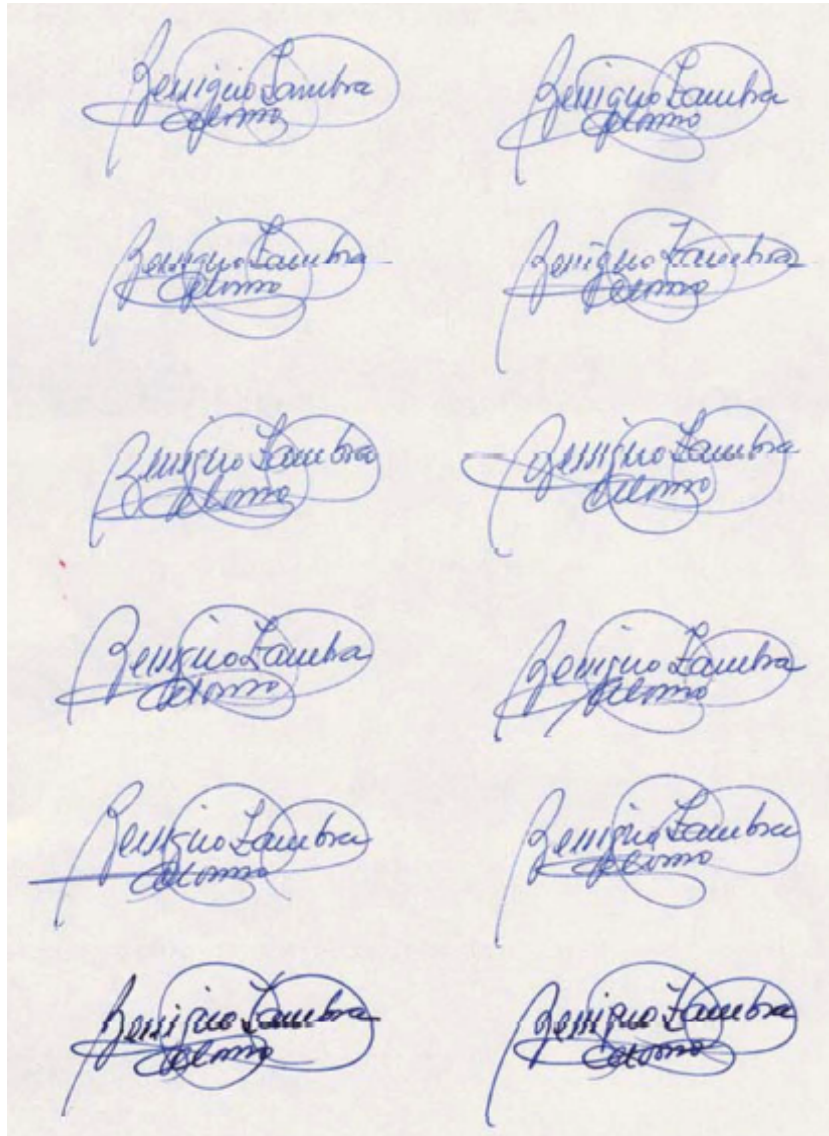 Benigno Zambra
Alonso
Benigno Zambra
Alonso
Benigno Zambra
Alonso
Benigno Zambra
Alonso
Benigno Zambra
Alonso
Benigno Zambra
Alonso
Benigno Zambra
Alonso
Benigno Zambra
Alonso
Benigno Zambra
Alonso
Benigno Zambra
Alonso
Benigno Zambra
Alonso
Benigno Zambra
Alonso